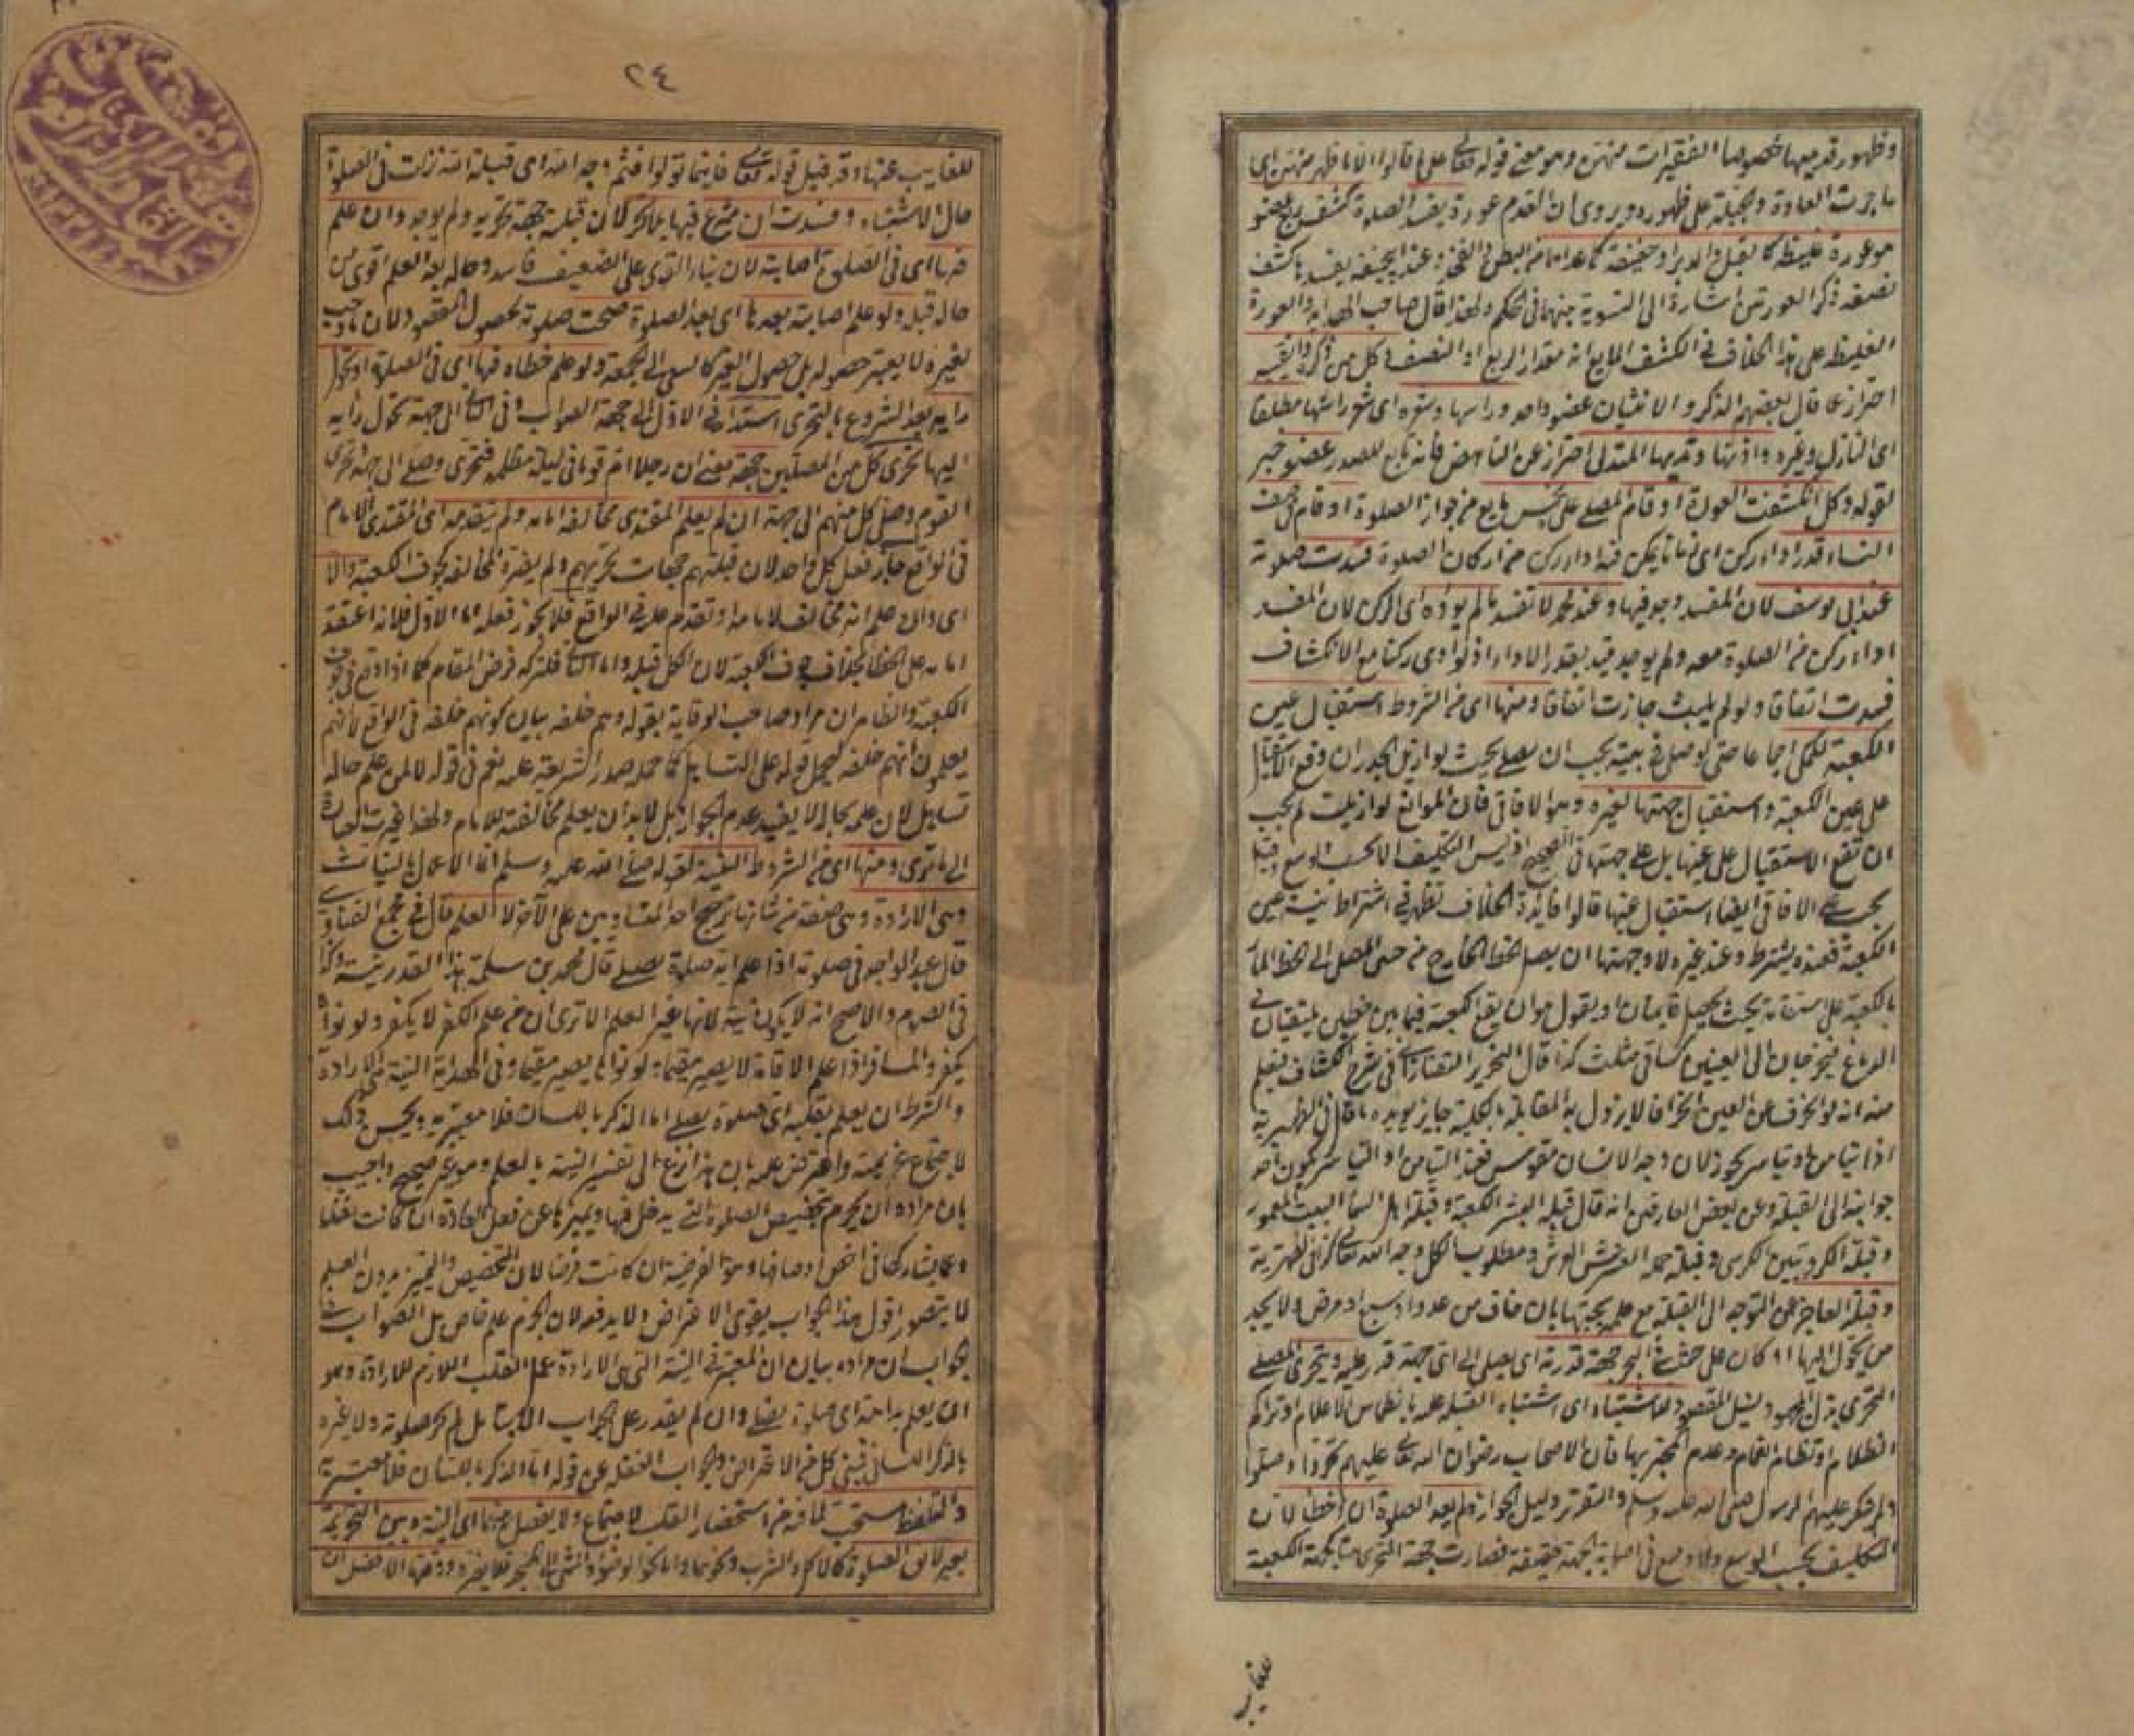 وظهور قدميها خصوصا الفقيرات منهن وهو معنى قوله تعالى على ما قالوا الا ما ظهر منها اى
ما جرت العادة والجبلة على ظهوره ويروى ان القدم عورة يفسد الصلوة كشف ربع عضو
هو عورة غليظة كالقبل والدبر او خفيفة كما عداهما من البطن والفخذ وعند ابى يوسف يفسد بكشف
نصفه ذكر العورتين اشارة الى التسوية بينهما فى الحكم ولهذا قال صاحب الهداية والعورة
الغليظة على هذا الخلاف فى الكشف المانع انه مقدار الربع او النصف كل من ذكر وانثييه
احتراز عما قال بعضهم الذكر والانثيان عضو واحد ورأسها وشعره اى شعر رأسها مطلقا
اى النازل وغيره واذنها وثديها المتدلى احتراز عن الناهض فانه تابع للصدر عضو خبر
لقوله وكل انكشفت العورة او قام المصلى على نجس مانع من جواز الصلوة او قام فى صف
النساء قدر اداء ركن اى زمانا يمكن فيه اداء ركن من اركان الصلوة فسدت صلوته
عند ابى يوسف لان المفسد وجد فيها وعند محمد لا تفسد ما لم يؤده اى الركن لان المفسد
اداء ركن من الصلوة معه ولم يوجد قيد بقدر الاداء اذ لو ادى ركنا مع الانكشاف
فسدت اتفاقا ولو لم يلبث جازت اتفاقا ومنها اى من الشروط استقبال عين
الكعبة للمكى اجماعا حتى لو صلى فى بيته يجب ان يصلى بحيث لو ازيل الجدران وقع الاستقبال
على عين الكعبة واستقبال جهتها لغيره وهو الآفاقى فان الموانع لو ازيلت لم يجب
ان تقع الاستقبال على عينها بل على جهتها فى الصحيح اذ ليس التكليف الا بحسب الوسع وقيل
يجب على الآفاقى ايضا استقبال عينها قالوا فائدة الخلاف تظهر فى اشتراط نية عين
الكعبة فعنده يشترط وعند غيره لا وجهتها ان يصل الخط الخارج من جبين المصلى الى الخط المار
بالكعبة على استقامة بحيث يحصل قائمتان او يقول هو ان يقع الكعبة فيما بين خطين يلتقيان فى
الدماغ فيخرجان الى العينين كساقى مثلث كذا قال النحرير التفتازانى فى شرح الكشاف فيعلم
منه انه لو انحرف عن العين انحرافا لا يزول به المقابلة بالكلية جاز يؤيده ما قال فى الظهيرية
اذا تيامن او تياسر يجوز لان وجه الانسان مقوس فعند التيامن او التياسر يكون احد
جوانبه الى القبلة وعن بعض العارفين انه قال قبلة البشر الكعبة وقبلة اهل السماء البيت المعمور
وقبلة الكروبيين الكرسى وقبلة حملة العرش العرش ومطلوب الكل وجه الله تعالى كذا فى الظهيرية
وقبلة العاجز عن التوجه الى القبلة مع علمه بجهتها بان خاف من عدو او سبع او مرض ولا يجد
من يحول اليها او كان على خشبة فى البحر جهة قدرته اى يصلى الى اى جهة قدر عليه ويتحرى المصلى
التحرى بذل المجهود لنيل المقصود للاشتباه اى اشتباه القبلة عليه بانطماس الاعلام او تراكم
الظلام او تضام الغمام وعدم المخبر بها فان الاصحاب رضوان الله تعالى عليهم تحروا وصلوا
ولم ينكر عليهم الرسول صلى الله عليه وسلم والتقرير دليل الجواز ولم يعد الصلوة ان اخطأ لان
التكليف بحسب الوسع ولا وسع فى اصابة الجهة حقيقة فصارت جهة التحرى هنا كجهة الكعبة
للغايب
٢٤
للغايب عنها وقد قيل قوله تعالى فاينما تولوا فثم وجه الله اى قبلة الله نزلت فى الصلوة
حال الاشتباه وفسدت ان شرع فيها بلا تحر لان قبلته جهة تحريه ولم يوجد وان علم
فيها اى فى الصلوة اصابته لان بناء القوى على الضعيف فاسد وحاله بعد العلم اقوى من
حاله قبله ولو علم اصابته بعدها اى بعد الصلوة صحت صلوته لحصول المقصود لان ما وجب
لغيره لا يعتبر حصوله بل حصول الغير كالسعى الى الجمعة ولو علم خطاه فيها اى فى الصلوة او تحول
رايه بعد الشروع بالتحرى استدار فى الاول الى جهة الصواب وفى الثانى الى جهة تحول رايه
اليها تحرى كل من المصلين جهة يعنى ان رجلا ام قوما فى ليلة مظلمة فتحرى وصلى الى جهة وتحرى
القوم وصلى كل منهم الى جهة ان لم يعلم المقتدى مخالفة امامه ولم يتقدمه اى المقتدى الامام
فى الواقع جاز فعل كل واحد لان قبلتهم جهات تحريهم ولم يضره المخالفة كجوف الكعبة والا
اى وان علم انه مخالف لامامه او تقدم عليه فى الواقع فلا يجوز فعله اما الاول فلانه اعتقد
امامه على الخطأ بخلاف جوف الكعبة لان الكل قبلة واما الثانى فلتركه فرض المقام كما اذا وقع فى جوف
الكعبة والظاهر ان مراد صاحب الوقاية بقوله وهم خلفه بيان كونهم خلفه فى الواقع لا انهم
يعلمون انهم خلفه ليحمل قوله على التساهل كما حمله صدر الشريعة عليه نعم فى قوله لا لمن علم حاله
تساهل لان علمه بحاله لا يفيد عدم الجواز بل لا بد ان يعلم مخالفته للامام ولهذا غيرت العبارة
الى ما ترى ومنها اى من الشروط النية لقوله صلى الله عليه وسلم انما الاعمال بالنيات
وهى الارادة وهى صفة من شانها ترجيح احد المتساويين على الآخر لا العلم قال فى مجمع الفتاوى
قال عبد الواحد فى صلوته اذا علم اية صلوة يصلى قال محمد بن سلمة هذا القدر نية وكذا
فى الصوم والاصح انه لا يكون نية لانها غير العلم الا ترى ان من علم الكفر لا يكفر ولو نواه
يكفر والمسافر اذا علم الاقامة لا يصير مقيما ولو نواها يصير مقيما وفى الهداية النية هى الارادة
والشرط ان يعلم بقلبه اى صلوة يصلى اما الذكر باللسان فلا معتبر به ويحسن ذلك
لاجتماع عزيمته واعترض عليه بان هذا نزع الى تفسير النية بالعلم وهو غير صحيح واجيب
بان مراده ان يجزم بتخصيص الصلوة التى يدخل فيها ويميزها عن فعل العادة ان كانت نفلا
وعما يشاركها فى اخص اوصافها وهو الفرضية ان كانت فرضا لان التخصيص والتمييز بدون العلم
لا يتصور اقول هذا الجواب يقوى الاعتراض ولا يدفعه لان الجزم علم خاص بل الصواب فى
الجواب ان مراده بيان ان المعتبر فى النية التى هى الارادة عمل القلب اللازم للارادة وهو
ان يعلم بداهة اى صلوة يصلى وان لم يقدر على الجواب الا بتأمل لم تجز صلوته ولا عبرة
بالذكر اللسانى فمبنى كل من الاعتراض والجواب الغفلة عن قوله اما الذكر باللسان فلا معتبر به
والتلفظ مستحب لما فيه من استحضار القلب لاجتماع ولا يفصل بينها اى النية وبين التحريمة
بغير لائق الصلوة كالاكل والشرب ونحوهما واما نحو الوضوء والمشى الى المسجد فلا يضره ووقتها الافضل ان